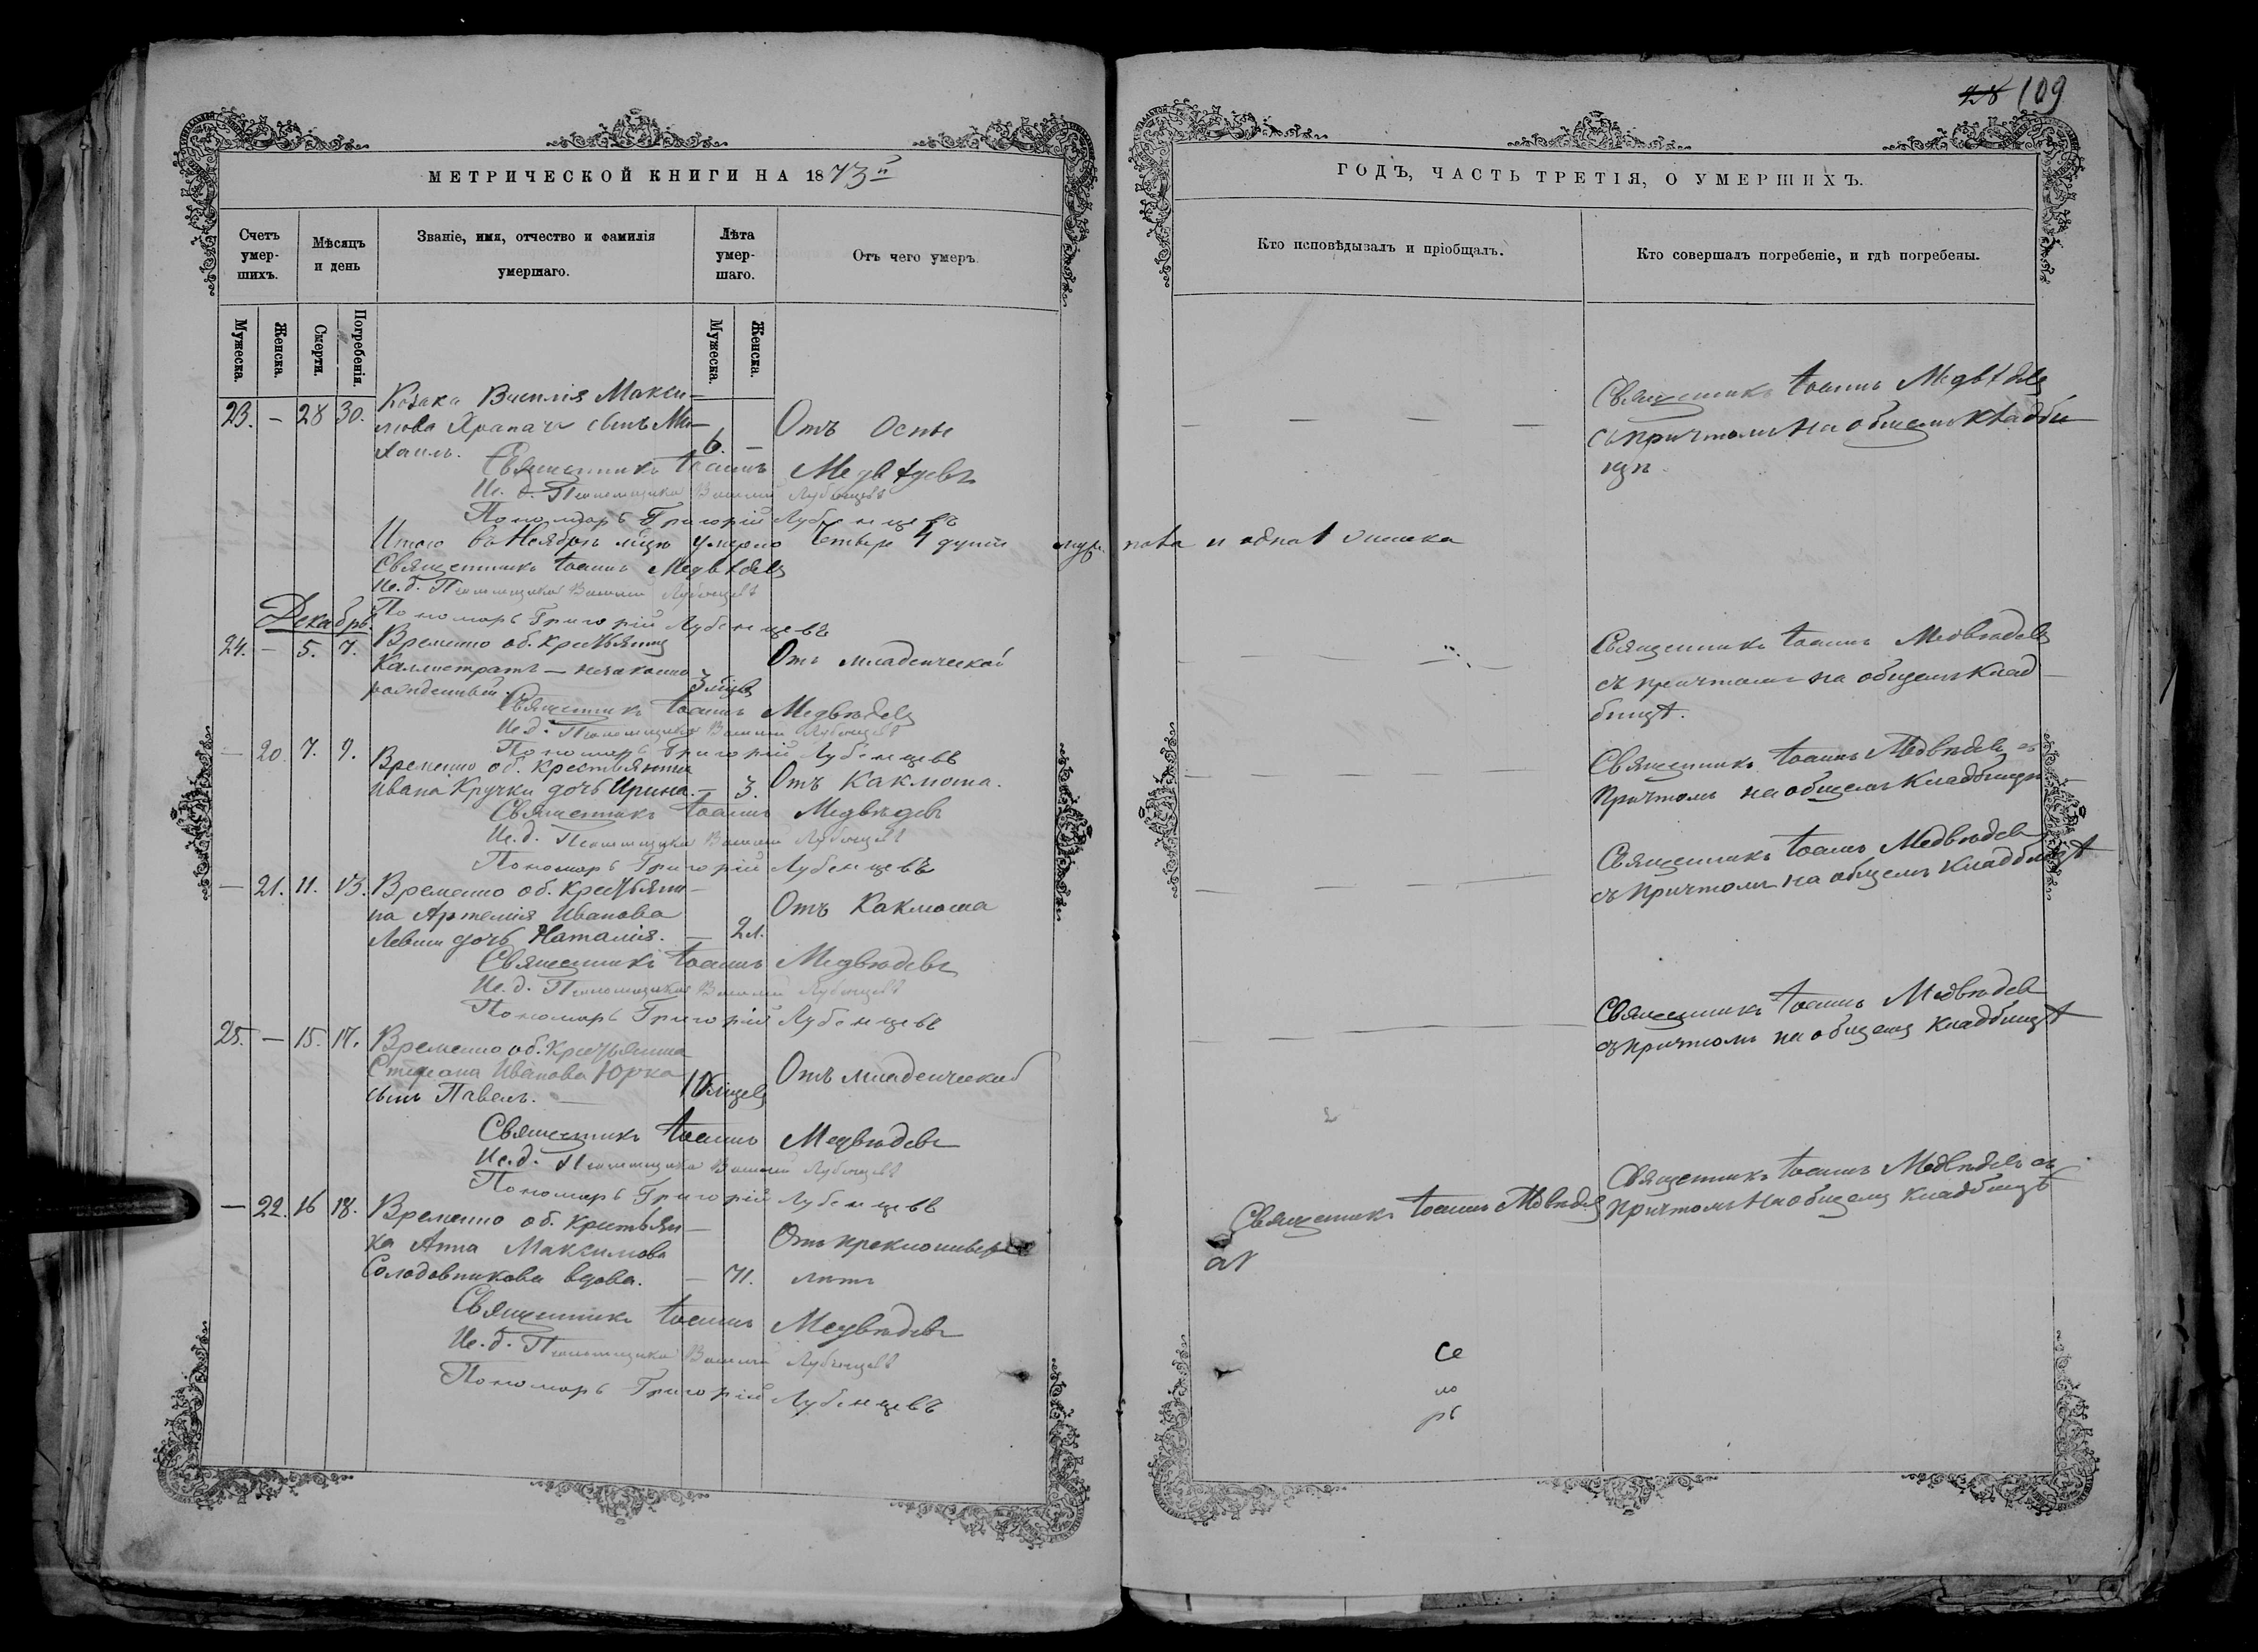 28 109
МЕТРИЧЕСКОЙ КНИГИ НА 1873й
ГОДЪ, ЧАСТЬ ТРЕТІЯ, О УМЕРШИХЪ.
Счетъ умер-шихъ.
Мѣсяцъ и день
Званіе, имя, отчество и фамилія умершаго.
Лѣта умер-шаго.
Отъ чего умеръ.
Кто исповѣдывалъ и пріобщалъ.
Кто совершалъ погребеніе, и гдѣ погребены.
Мужеска.
Женска.
Смерти.
Погребенія.
Мужеска.
Женска.
Козака Василія Макси-
23. – 28 30. мова Храпача сынъ Ми- 6. – Отъ Оспы
хаилъ.
Священникъ Іоаннъ Медвѣдевъ
съ причтомъ на общемъ кладби
щѣ
Священникъ Іоаннъ Медвѣдевъ
Ис. д. Псаломщика Василій Лубенцевъ
Пономарь Григорій Лубенцевъ
Итого въ Ноябрѣ мцѣ умерло Четыре 4 души муж. пола и одна 1 женска
Священникъ Іоаннъ Медвѣдевъ
Ис. д. Псаломщика Василій Лубенцевъ
Пономарь Григорій Лубенцевъ
Декабрь.
24. – 5. 7. Временно об. крестьянец
Каллистратъ – незаконно
рожденный. 3 мцвъ Отъ младенческой
Священникъ Іоаннъ Медвѣдевъ
съ причтомъ на общемъ клад
бищѣ.
Священникъ Іоаннъ Медвѣдевъ
Ис. д. Псаломщика Василій Лубенцевъ
Пономарь Григорій Лубенцевъ
– 20. 7. 9. Временно об. крестьянина
Ивана Кручки дочь Ирина. – 3. Отъ Какмоша.
Священникъ Іоаннъ Медвѣдевъ съ
причтомъ на общемъ кладбищѣ
Священникъ Іоаннъ Медвѣдевъ
Ис. д. Псаломщика Василій Лубенцевъ
Пономарь Григорій Лубенцевъ
– 21. 11. 13. Временно об. крестьяни-
на Артемія Иванова
дочь Наталія. – 2 л. Отъ Какмоша
Священникъ Іоаннъ Медвѣдевъ
съ причтомъ на общемъ кладбищѣ
Священникъ Іоаннъ Медвѣдевъ
Ис. д. Псаломщика Василій Лубенцевъ
Пономарь Григорій Лубенцевъ
25. – 15. 17. Временно об. крестьянина
Стефана Иванова Юрка
сынъ Павелъ. – 10 мцевъ Отъ младенческой
Священникъ Іоаннъ Медвѣдевъ
съ причтомъ на общемъ кладбищѣ
Священникъ Іоаннъ Медвѣдевъ
Ис. д. Псаломщика Василій Лубенцевъ
Пономарь Григорій Лубенцевъ
– 22. 16 18. Временно об. крестьян-
ка Анна Максимова
Солодовникова вдова. – 71. Отъ преклонныхъ
лѣтъ
Священникъ Іоаннъ Медвѣдевъ
Священникъ Іоаннъ Медвѣдевъ съ
причтомъ на общемъ кладбищѣ
Священникъ Іоаннъ Медвѣдевъ
Ис. д. Псаломщика Василій Лубенцевъ
Пономарь Григорій Лубенцевъ
се
мо
рь